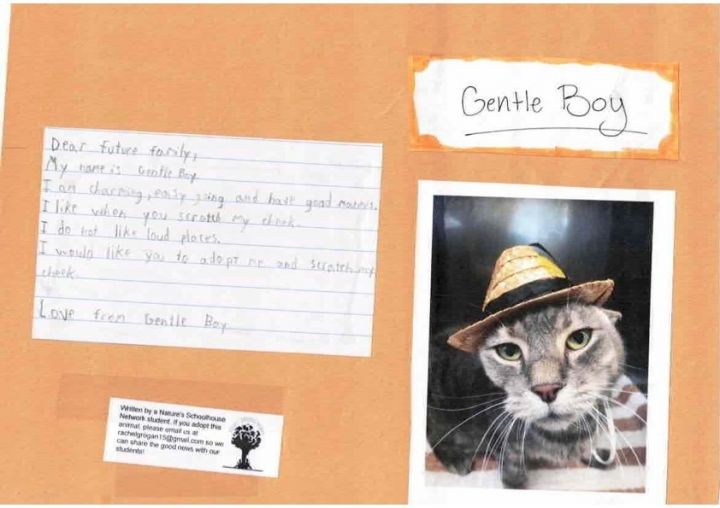 Gentle Boy
Dear future family,
My name is Gentle Boy
I am charming, easy going and have good maners.
I like when you scratch my cheek.
I do not like loud places.
I would like you to adopt me and scratch my
cheek.
Love from Gentle Boy
Written by a Nature's Schoolhouse
Network student. If you adopt this
animal, please email us at
rachelgrogan15@gmail.com so we
can share the good news with our
students!